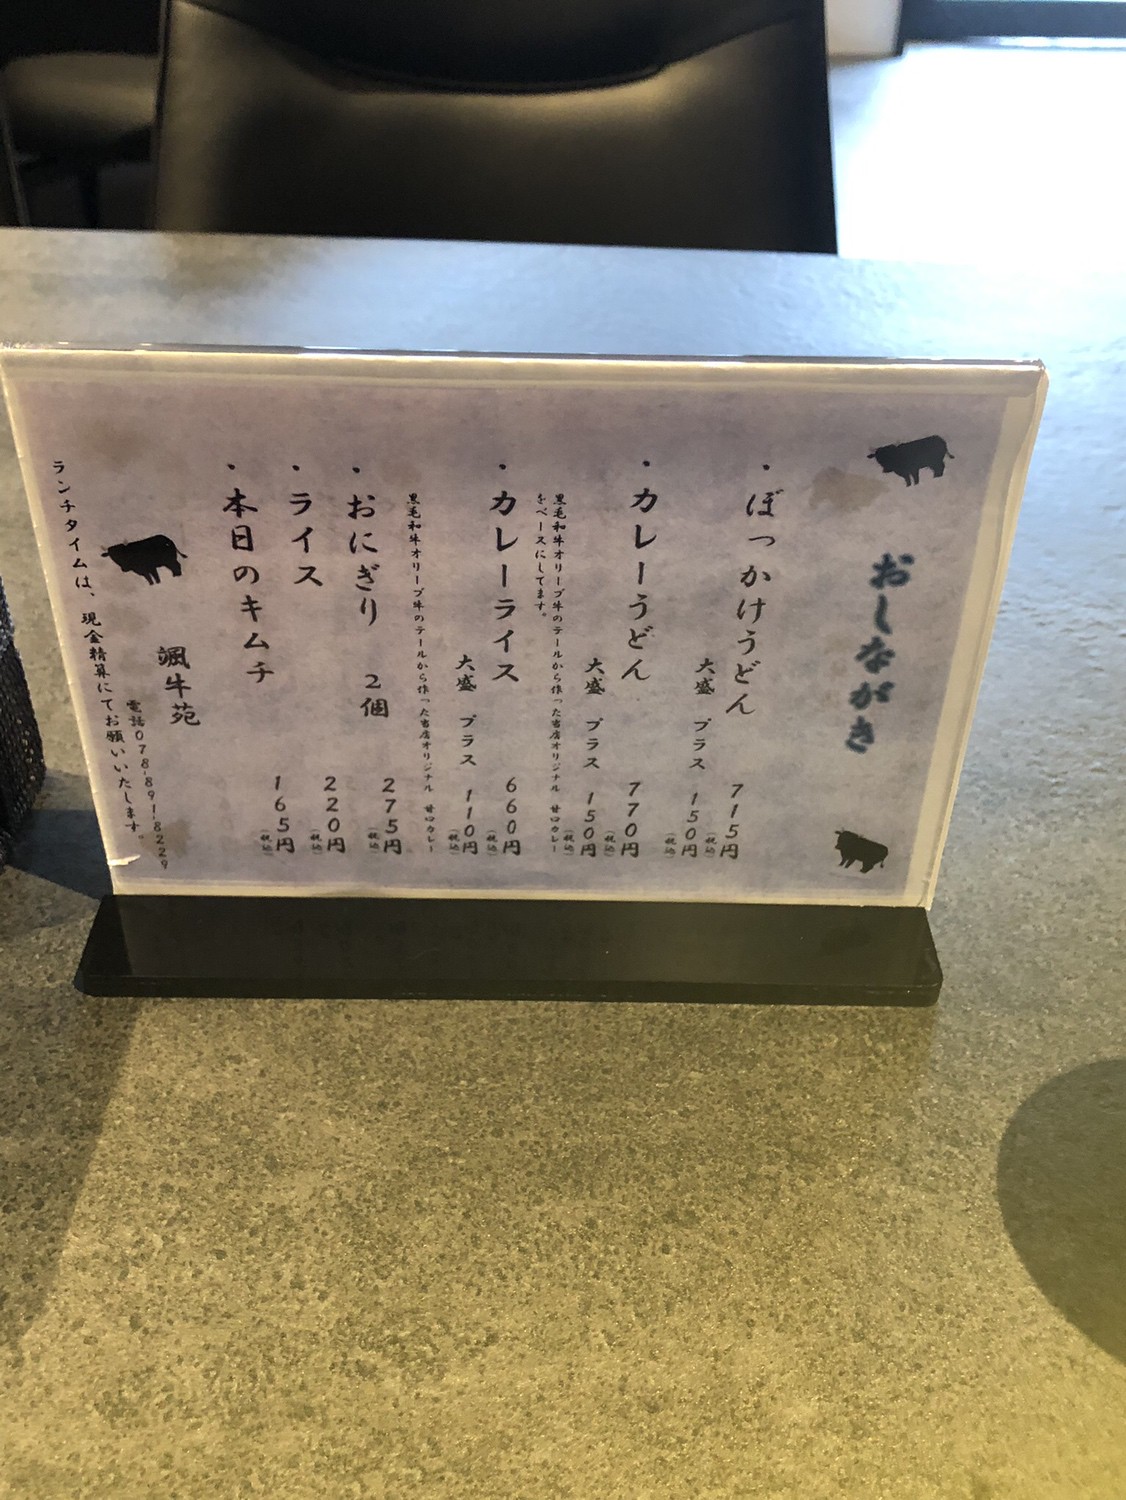 おしながき
・ぼっかけうどん 715円(税込)
大盛 プラス 150円(税込)
・カレーうどん 770円(税込)
大盛 プラス 150円(税込)
黒毛和牛オリーブ牛のテールから作った当店オリジナル 甘口カレー
をベースにしてます。
・カレーライス 660円(税込)
大盛 プラス 110円(税込)
黒毛和牛オリーブ牛のテールから作った当店オリジナル 甘口カレー
・おにぎり 2個 275円(税込)
・ライス 220円(税込)
・本日のキムチ 165円(税込)
颯牛苑
電話078-891-8229
ランチタイムは、現金精算にてお願いいたします。